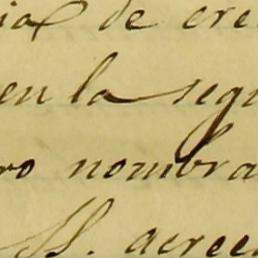 ia de cre
en la segu
ro nombra
SS. acree